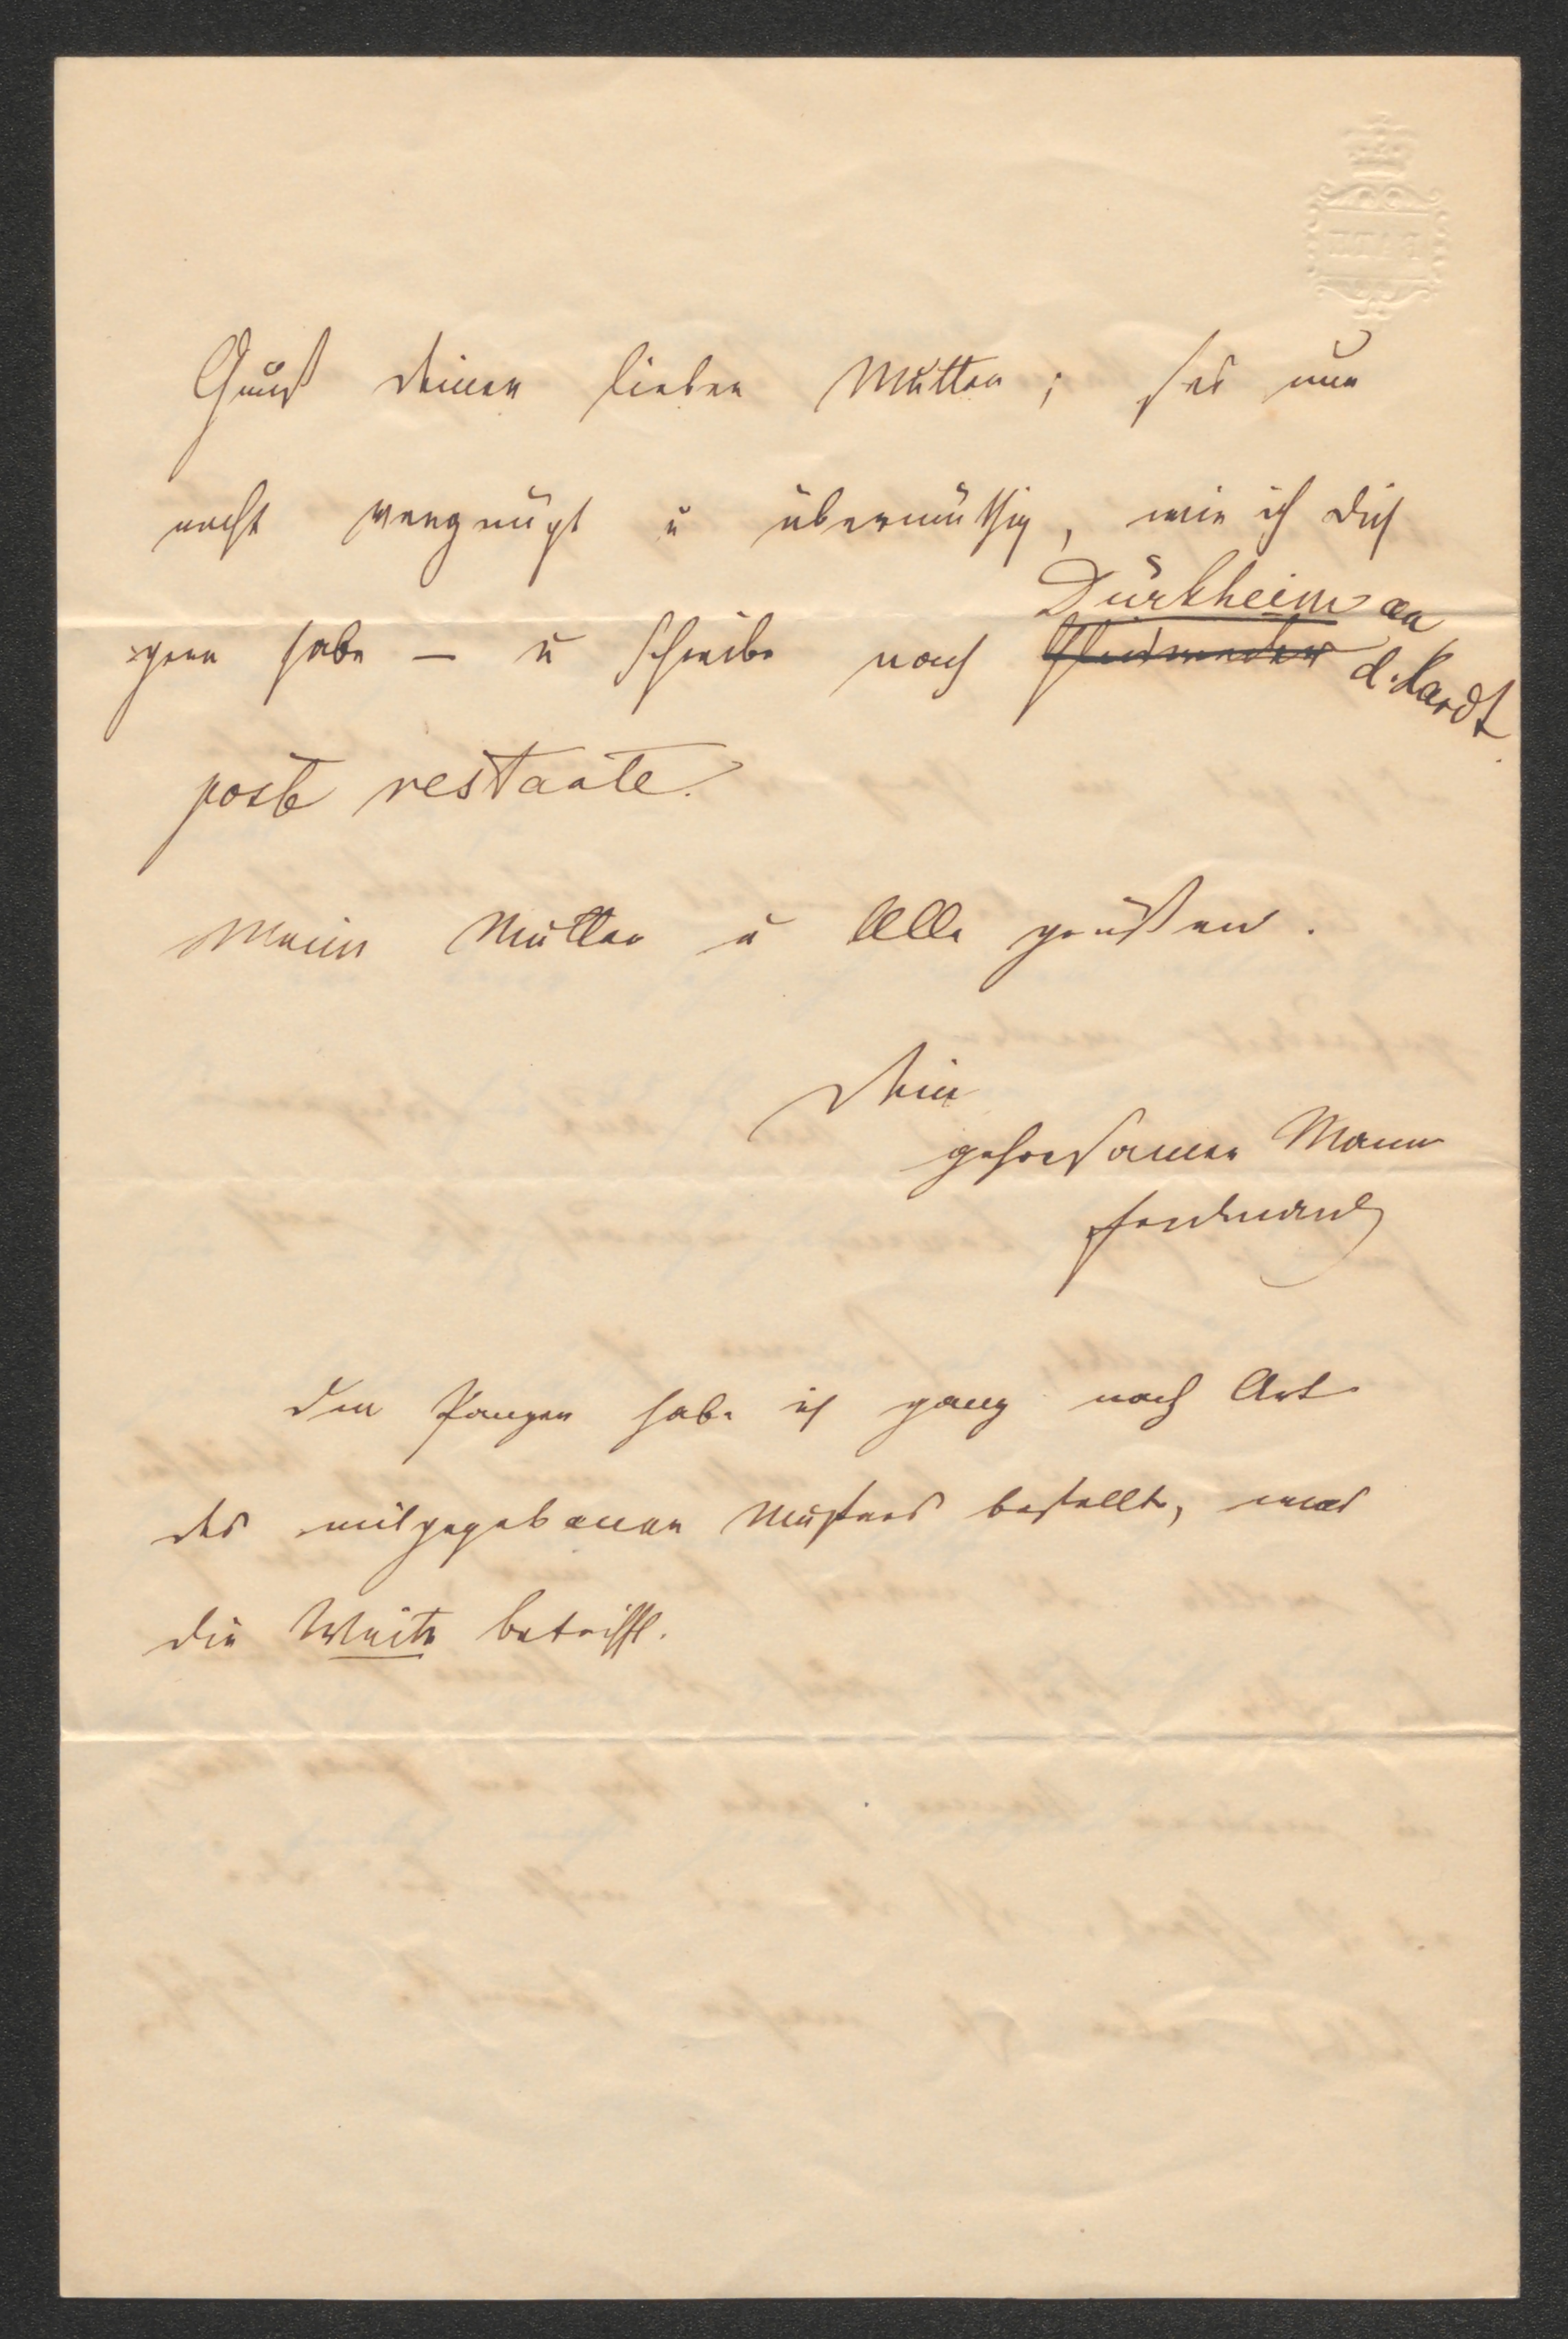 BATH
Gruß Deiner lieben Mutter; sei nur
recht vergnügt u übermüthig, wie ich Dich
Dürkheim an
gern habe – u schreibe nach d. Hardt
poste restante.
Meine Mutter u Alle grüßen.
Dein
gehorsamer Mann
Ferdinand
Den Panzer habe ich ganz nach Art
des mitgegebenen Musters bestellt, was
die Weite betrifft.